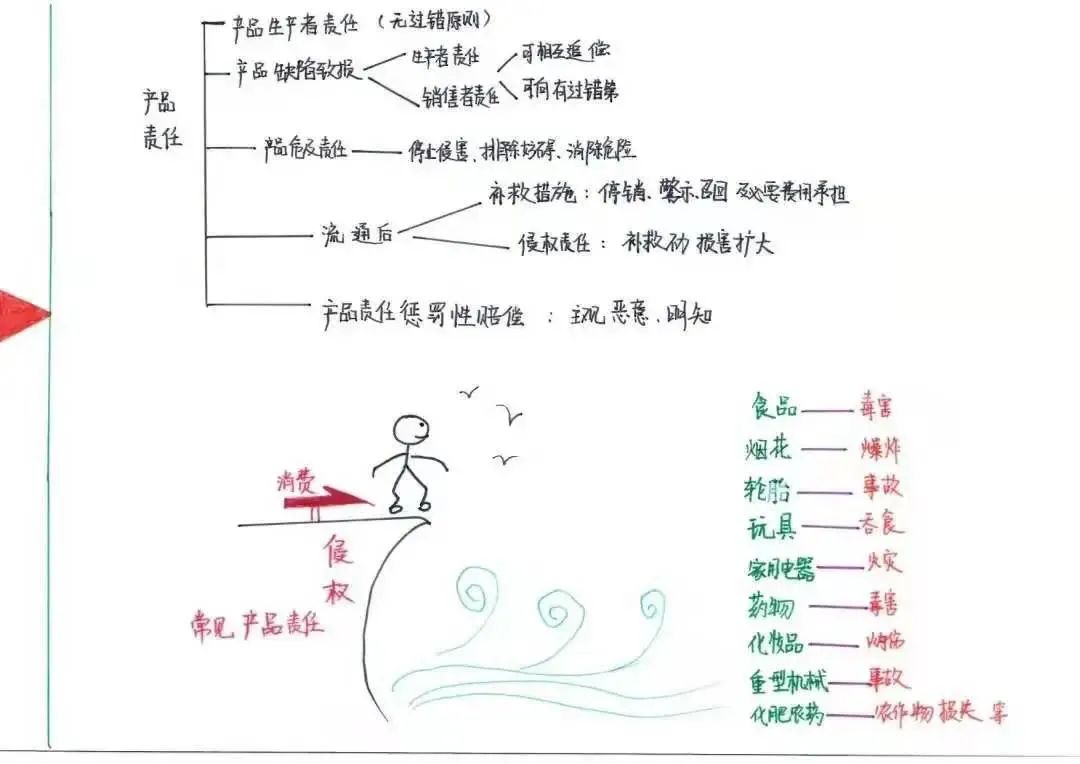 产品生产者责任（无过错原则）
产品缺陷致损
生产者责任
可相互追偿
销售者责任
可向有过错第
产品
责任
产品危及责任
停止侵害、排除妨碍、消除危险
补救措施：停销、警示、召回 及必要费用承担
流通后
侵权责任：补救不力 损害扩大
产品责任惩罚性赔偿：主观恶意、明知
消费
侵
权
常见产品责任
食品 毒害
烟花 爆炸
轮胎 事故
玩具 吞食
家用电器 火灾
药物 毒害
化妆品
重型机械 事故
化肥农药 农作物损失等